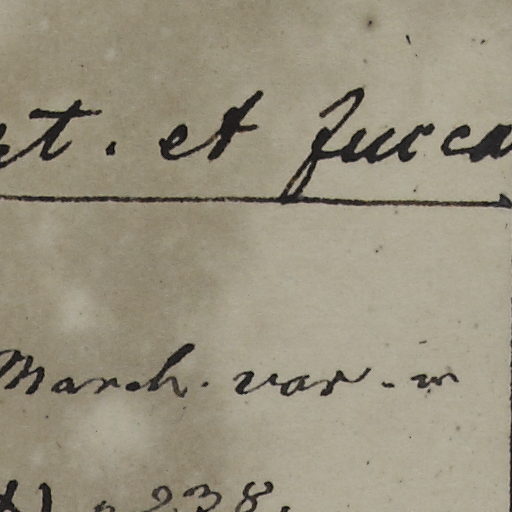 t. et fucca
March. var.
p 238.